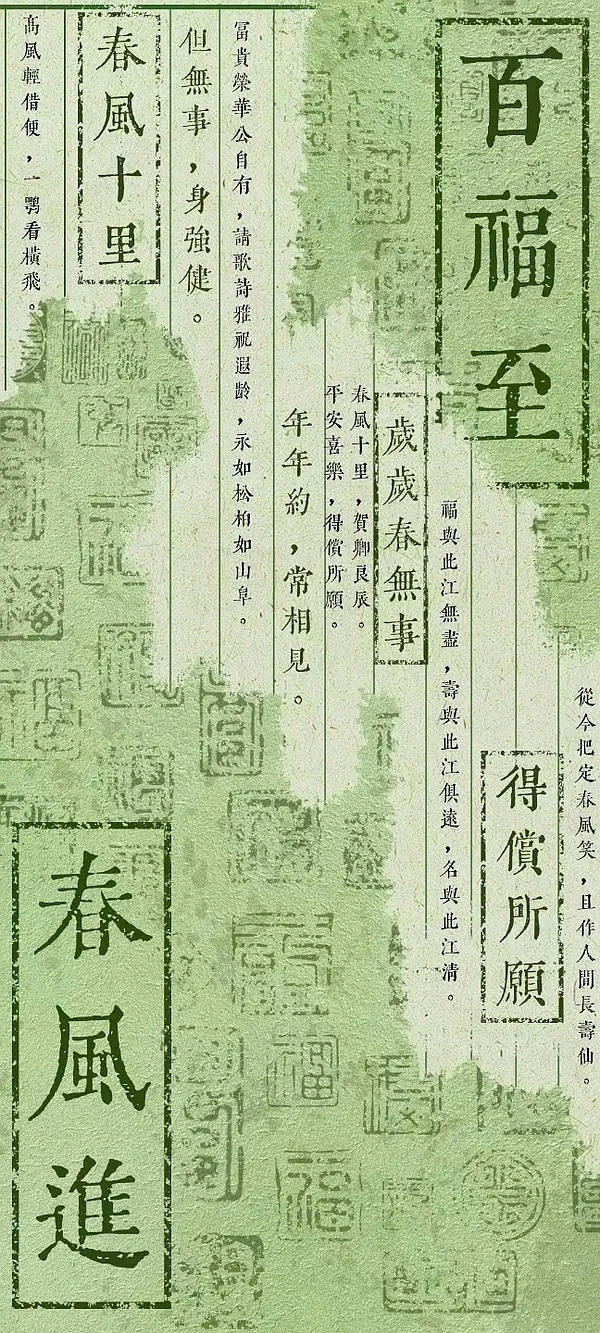 百福至
從今把定春風笑，且作人間長壽仙。
得償所願
福與此江無盡，壽與此江俱遠，名與此江清。
歲歲春無事
春風十里，賀卿良辰。
平安喜樂，得償所願。
年年約，常相見。
富貴榮華公自有，請歌詩雅祝遐齡，永如松柏如山阜。
但無事，身強健。
春風十里
髙風輕借便，一鶚看橫飛。
春風進